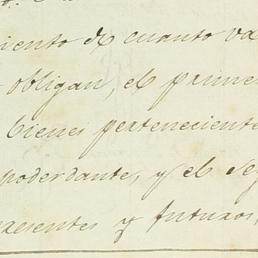 iento de cuanto va
obligan, el prime
bienes perteneciente
poderdante, y el Se
presentes y futuros,